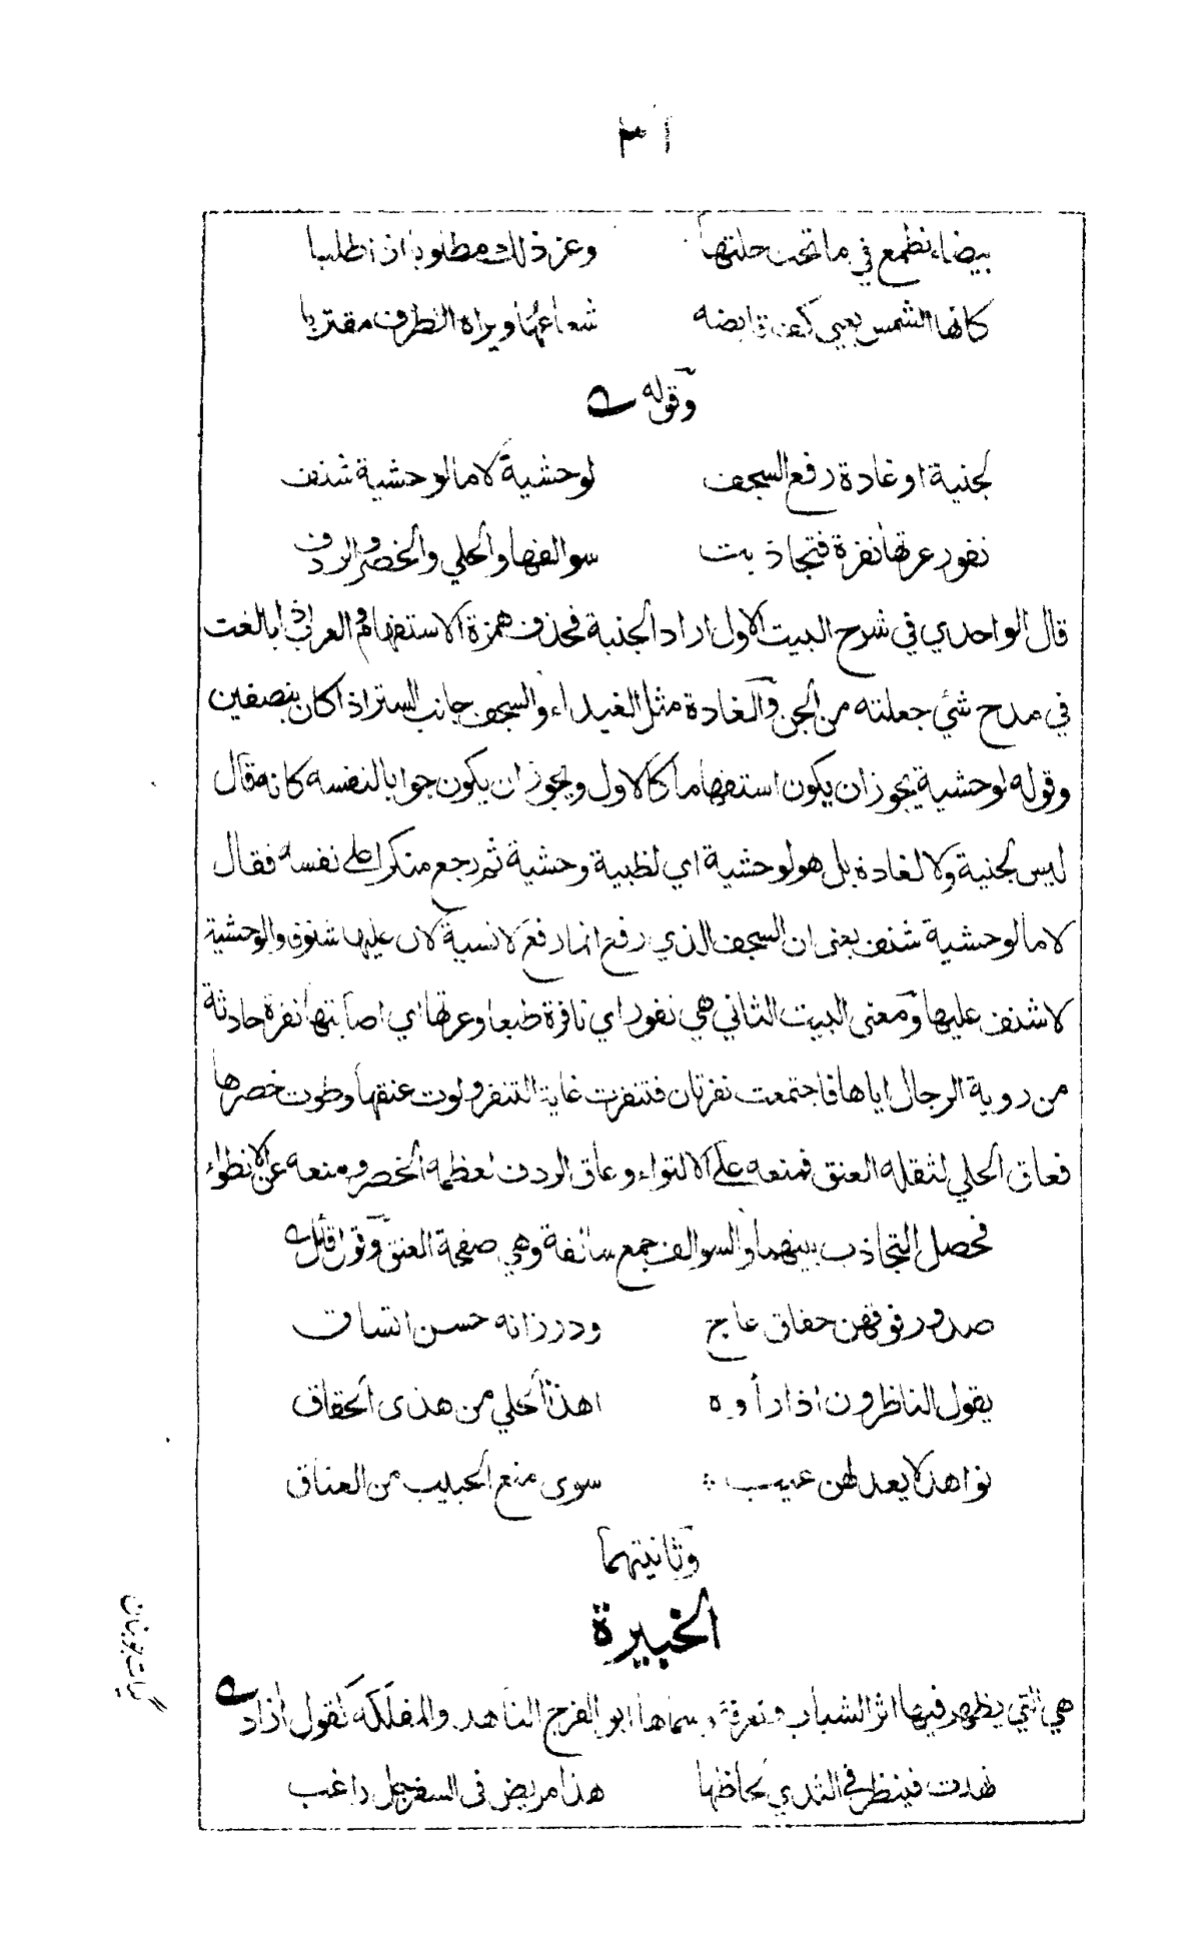 ٣١
بيضاء تطمع في ما تحت حلتها وعز ذلك مطلوبا اذا طلبا
كانها الشمس يعيي كف قابضه شعاعها ويراه الطرف مقتربا
وقوله
لجنية او غادة رفع السجف لوحشية لا ما لوحشية شنف
نفور عرتها نفرة فتجاذبت سوالفها والحلي والخصر والردف
قال الواحدي في شرح البيت الاول اراد الجنية فحذف همزة الاستفهام والعرب اذا بالغت
في مدح شئ جعلته من الجن والغادة مثل الغيداء والسجف جانب الستر اذا كان بنصفين
وقوله لوحشية يجوز ان يكون استفهاما كالاول ويجوز ان يكون جوابا لنفسه كانه قال
ليس لجنية ولا لغادة بل هو لوحشية اي لظبية وحشية ثم رجع منكرا على نفسه فقال
لا ما لوحشية شنف يعني ان السجف الذي رفع انما رفع لانسية لان عليها شنوف والوحشية
لا شنف عليها ومعنى البيت الثاني هي نفور اي نافرة طبعا وعرتها اي اصابتها نفرة حادثة
من روية الرجال اياها فاجتمعت نفرتان فتنفرت غاية التنفر ولوت عنقها وطوت خصرها
فعاق الحلي لثقله العنق فمنعه على الالتواء وعاق الردف لعظمه الخصر ومنعه عن الانطواء
فحصل التجاذب بينهما والسوالف جمع سالفة وهي صفحة العنق وقول قائل
صدور فوقهن حقاق عاج ودر زانه حسن اتساق
يقول الناظرون اذا راوه اهذا الحلي من هذى الحقاق
نواهد لا يعد لهن عيب سوى منع الحبيب من العناق
وثانيتهما
الخبيرة
هي التي يظهر فيها اثر الشباب وتعرفه وسماها ابو الفرج الناهد والمفلكه كقول آزاد
نهدت فينظر في الثدي لحاظها هذا مريض في السفرجل راغب